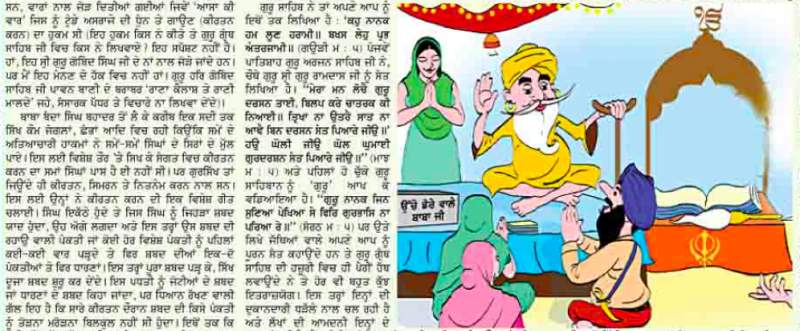 ਸਨ, ਵਾਰਾਂ ਨਾਲ ਜੋੜ ਦਿਤੀਆਂ ਗਈਆਂ ਜਿਵੇਂ 'ਆਸਾ ਕੀ
ਵਾਰ' ਜਿਸ ਨੂੰ ਟੁੰਡੇ ਅਸਰਾਜੇ ਦੀ ਧੁਨ ਤੇ ਗਾਉਣ (ਕੀਰਤਨ
ਕਰਨ) ਦਾ ਹੁਕਮ ਸੀ (ਇਹ ਹੁਕਮ ਕਿਸ ਨੇ ਕੀਤੇ ਤੇ ਗੁਰੂ ਗ੍ਰੰਥ
ਸਾਹਿਬ ਜੀ ਵਿਚ ਕਿਸ ਨੇ ਲਿਖਵਾਏ? ਇਹ ਸਪੱਸ਼ਟ ਨਹੀਂ ਹੈ।
ਹਾਂ, ਇਹ ਸ੍ਰੀ ਗੁਰੂ ਗੋਬਿੰਦ ਸਿੰਘ ਜੀ ਦੇ ਨਾਂ ਨਾਲ ਜੋੜੇ ਜਾਂਦੇ ਹਨ।
ਪਰ ਮੈਂ ਇਹ ਮੰਨਣ ਦੇ ਹੱਕ ਵਿਚ ਨਹੀਂ ਹਾਂ। ਗੁਰੂ ਹਰਿ ਗੋਬਿੰਦ
ਸਾਹਿਬ ਜੀ ਪਾਵਨ ਬਾਣੀ ਦੇ ਬਰਾਬਰ 'ਰਾਣਾ ਕੈਲਾਸ਼ ਤੇ ਰਾਣੀ
ਮਾਲਦੇ' ਜਹੇ, ਸੰਸਾਰਕ ਪੱਧਰ ਤੇ ਵਿਚਾਰੇ ਨਾ ਲਿਖਵਾ ਦੇਂਦੇ)।
ਬਾਬਾ ਬੰਦਾ ਸਿੰਘ ਬਹਾਦਰ ਤੋਂ ਲੈ ਕੇ ਕਰੀਬ ਇਕ ਸਦੀ ਤਕ
ਸਿੱਖ ਕੌਮ ਜੰਗਲਾਂ, ਛੰਭਾਂ ਆਦਿ ਵਿਚ ਰਹੀ ਕਿਉਂਕਿ ਸਮੇਂ ਦੇ
ਅਤਿਆਚਾਰੀ ਹਾਕਮਾਂ ਨੇ ਸਮੇਂ-ਸਮੇਂ ਸਿੰਘਾਂ ਦੇ ਸਿਰਾਂ ਦੇ ਮੁੱਲ
ਪਾਏ। ਇਸ ਲਈ ਵਿਸ਼ੇਸ਼ ਤੌਰ 'ਤੇ ਸਿਖ ਕੇ ਸੰਗਤ ਵਿਚ ਕੀਰਤਨ
ਕਰਨ ਦਾ ਸਮਾਂ ਸਿੰਘਾਂ ਪਾਸ ਹੈ ਈ ਨਹੀਂ ਸੀ। ਪਰ ਗੁਰਸਿੱਖ ਤਾਂ
ਜਿਉਂਦੇ ਹੀ ਕੀਰਤਨ, ਸਿਮਰਨ ਤੇ ਨਿਤਨੇਮ ਕਰਨ ਨਾਲ ਸਨ।
ਇਸ ਲਈ ਉਨ੍ਹਾਂ ਨੇ ਕੀਰਤਨ ਕਰਨ ਦੀ ਇਕ ਵਿਸ਼ੇਸ਼ ਰੀਤ
ਚਲਾਈ। ਸਿੰਘ ਇਕੱਠੇ ਹੁੰਦੇ ਤੇ ਜਿਸ ਸਿੰਘ ਨੂੰ ਜਿਹੜਾ ਸ਼ਬਦ
ਯਾਦ ਹੁੰਦਾ, ਉਹ ਅੱਗੇ ਲਗਦਾ ਅਤੇ ਇਸ ਤਰ੍ਹਾਂ ਉਸ ਸ਼ਬਦ ਦੀ
ਰਹਾਉ ਵਾਲੀ ਪੰਕਤੀ ਜਾਂ ਕੋਈ ਹੋਰ ਵਿਸ਼ੇਸ਼ ਪੰਕਤੀ ਨੂੰ ਪਹਿਲਾਂ
ਕਈ-ਕਈ ਵਾਰ ਪੜ੍ਹਦੇ ਤੇ ਫਿਰ ਸ਼ਬਦ ਦੀਆਂ ਇਕ-ਦੋ
ਪੰਕਤੀਆਂ ਤੇ ਫਿਰ ਧਾਰਣਾਂ। ਇਸ ਤਰ੍ਹਾਂ ਪੂਰਾ ਸ਼ਬਦ ਪੜ੍ਹ ਕੇ, ਸਿੱਖ
ਦੂਜਾ ਸ਼ਬਦ ਸ਼ੁਰੂ ਕਰ ਦੇਂਦੇ। ਇਸ ਪਧਤੀ ਨੂੰ ਜੋਟੀਆਂ ਦੇ ਸ਼ਬਦ
ਜਾਂ ਧਾਰਣਾਂ ਦੇ ਸ਼ਬਦ ਕਿਹਾ ਜਾਂਦਾ, ਪਰ ਧਿਆਨ ਰੱਖਣ ਵਾਲੀ
ਗੱਲ ਇਹ ਹੈ ਕਿ ਸਾਰੇ ਕੀਰਤਨ ਦੌਰਾਨ ਸ਼ਬਦ ਦੀ ਕਿਸੇ ਪੰਕਤੀ
ਨੂੰ ਤੋੜਨਾ ਮਰੋੜਨਾ ਬਿਲਕੁਲ ਨਹੀਂ ਸੀ ਹੁੰਦਾ। ਇਥੋਂ ਤਕ ਕਿ
ਗੁਰੂ ਸਾਹਿਬ ਨੇ ਤਾਂ ਅਪਣੇ ਆਪ ਨੂੰ
ਇਥੋਂ ਤਕ ਲਿਖਿਆ ਹੈ : 'ਕਹੁ ਨਾਨਕ
ਹਮ ਲੂਣ ਹਰਾਮੀ॥ ਬਖਸ ਲੇਹੁ ਪ੍ਰਭ
ਅੰਤਰਜਾਮੀ॥ (ਗਉੜੀ ਮ : ੫) ਪੰਜਵੇਂ
ਪਾਤਿਸ਼ਾਹ ਗੁਰੂ ਅਰਜਨ ਸਾਹਿਬ ਜੀ ਨੇ,
ਚੌਥੇ ਗੁਰੂ ਸ੍ਰੀ ਗੁਰੂ ਰਾਮਦਾਸ ਜੀ ਨੂੰ ਸੰਤ
ਲਿਖਿਆ ਹੈ। "ਮੇਰਾ ਮਨ ਲੋਚੈ ਗੁਰੂ
ਦਰਸਨ ਤਾਈ, ਬਿਲਪ ਕਰੇ ਚਾਤ੍ਰਕ ਕੀ
ਨਿਆਈ॥ ਤ੍ਰਿਖਾ ਨਾ ਉਤਰੈ ਸਾਂਤ ਨਾ
ਆਵੈ ਬਿਨ ਦਰਸਨ ਸੰਤ ਪਿਆਰੇ ਜੀਉ॥
ਹਉ ਘੋਲੀ ਜੀਉ ਘੋਲ ਘੁਮਾਈ
ਗੁਰਦਰਸ਼ਨ ਸੰਤ ਪਿਆਰੇ ਜੀਉ॥" (ਮਾਝ
ਮ : ੫) ਅਤੇ ਪਹਿਲਾਂ ਹੋ ਚੁੱਕੇ ਗੁਰੂ
ਸਾਹਿਬਾਨ ਨੂੰ 'ਗੁਰੂ' ਆਖ ਕੇ
ਵਡਿਆਇਆ ਹੈ। "ਗੁਰੂ ਨਾਨਕ ਜਿਨ
ਸੁਣਿਆ ਪੇਖਿਆ ਸੇ ਫਿਰਿ ਗੁਰਭਾਸਿ ਨਾ
ਪਰਿਆ ਰੇ॥" (ਸੋਰਠ ਮ : ੫) ਪਰ ਉਤੇ
ਲਿਖੇ ਜੱਥਿਆਂ ਵਾਲੇ ਅਪਣੇ ਆਪ ਨੂੰ
ਪੂਰਨ ਸੰਤ ਕਹਾਉਂਦੇ ਹਨ ਤੇ ਗੁਰੂ ਗ੍ਰੰਥ
ਸਾਹਿਬ ਦੀ ਹਜ਼ੂਰੀ ਵਿਚ ਹੀ ਪੈਰੀਂ ਹੱਥ
ਲਵਾਉਂਦੇ ਨੇ ਤੇ ਹੋਰ ਵੀ ਬਹੁਤ ਕੁੱਝ
ਇਤਰਾਜ਼ਯੋਗ। ਇਸ ਤਰ੍ਹਾਂ ਇਨ੍ਹਾਂ ਦੀ
ਦੁਕਾਨਦਾਰੀ ਧੜੱਲੇ ਨਾਲ ਚਲ ਰਹੀ ਹੈ
ਅਤੇ ਲੱਖਾਂ ਦੀ ਆਮਦਨੀ ਇਨ੍ਹਾਂ ਦੇ
ੴ
ਉੱਚੇ ਡੇਰੇ ਵਾਲੇ
ਬਾਬਾ ਜੀ